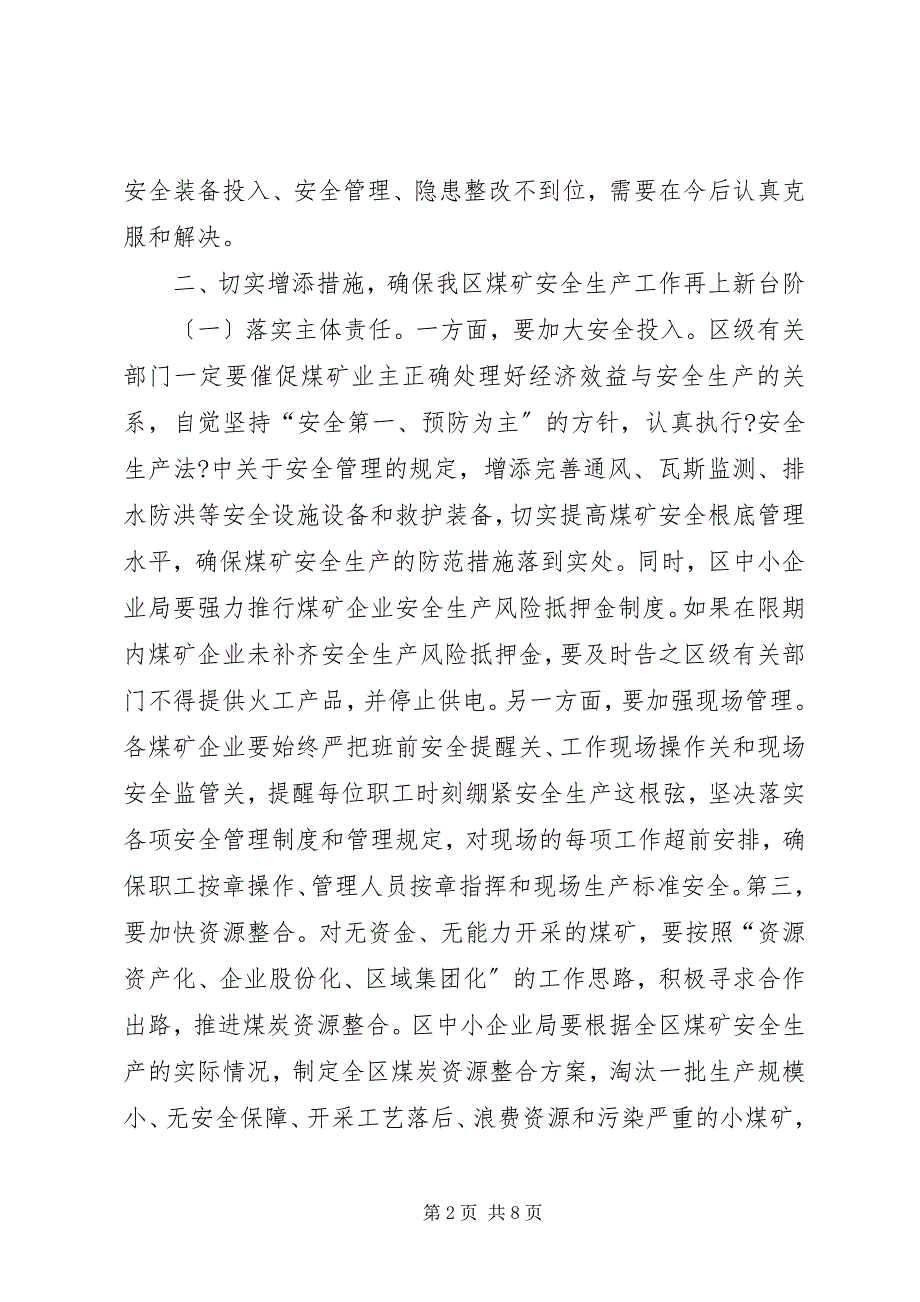 安全装备投入、安全管理、隐患整改不到位，需要在今后认真克
服和解决。
二、切实增添措施，确保我区煤矿安全生产工作再上新台阶
〔一〕落实主体责任。一方面，要加大安全投入。区级有关
部门一定要催促煤矿业主正确处理好经济效益与安全生产的关
系，自觉坚持“安全第一、预防为主〞的方针，认真执行?安全
生产法?中关于安全管理的规定，增添完善通风、瓦斯监测、排
水防洪等安全设施设备和救护装备，切实提高煤矿安全根底管理
水平，确保煤矿安全生产的防范措施落到实处。同时，区中小企
业局要强力推行煤矿企业安全生产风险抵押金制度。如果在限期
内煤矿企业未补齐安全生产风险抵押金，要及时告之区级有关部
门不得提供火工产品，并停止供电。另一方面，要加强现场管理。
各煤矿企业要始终严把班前安全提醒关、工作现场操作关和现场
安全监管关，提醒每位职工时刻绷紧安全生产这根弦，坚决落实
各项安全管理制度和管理规定，对现场的每项工作超前安排，确
保职工按章操作、管理人员按章指挥和现场生产标准安全。第三，
要加快资源整合。对无资金、无能力开采的煤矿，要按照“资源
资产化、企业股份化、区域集团化〞的工作思路，积极寻求合作
出路，推进煤炭资源整合。区中小企业局要根据全区煤矿安全生
产的实际情况，制定全区煤炭资源整合方案，淘汰一批生产规模
小、无安全保障、开采工艺落后、浪费资源和污染严重的小煤矿，
第 2 页 共 8 页